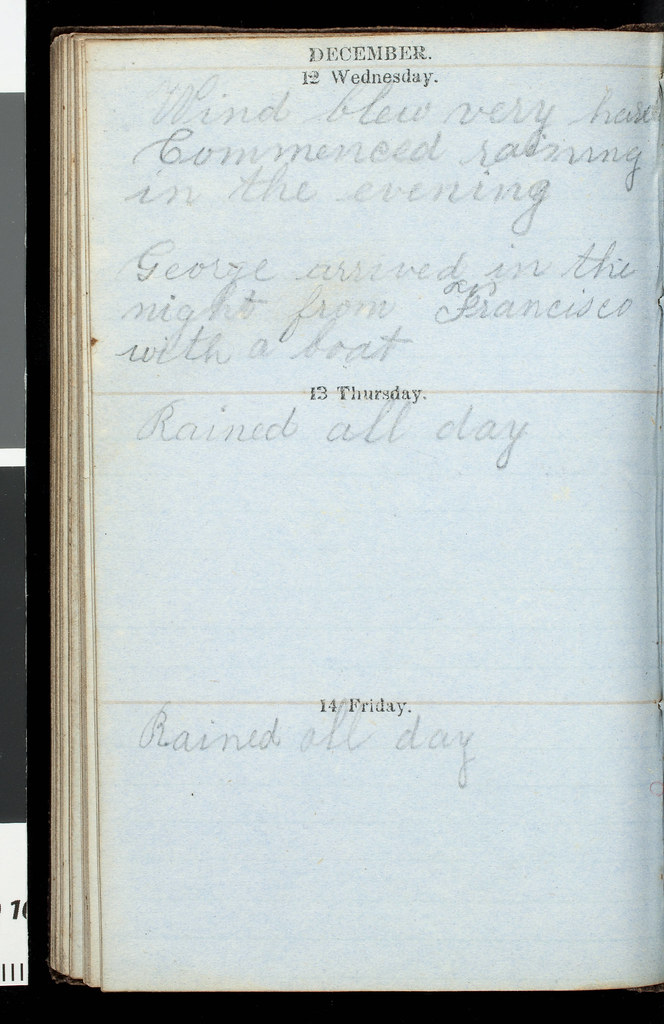 DECEMBER.
12 Wednesday.
Wind blew very hard
Commenced raining
in the evening
George arrived in the
night from San Francisco
with a boat
13 Thursday.
Rained all day
14 Friday.
Rained all day